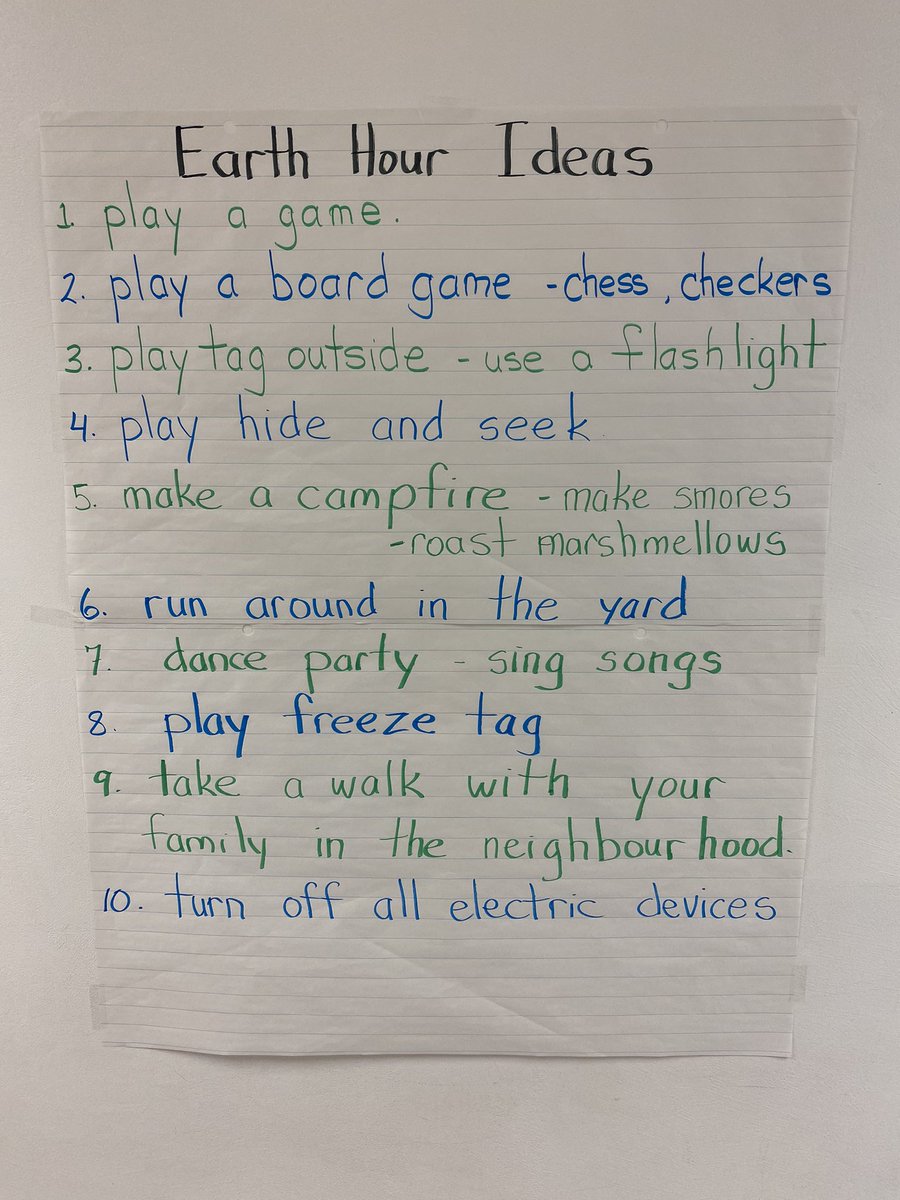 Earth Hour Ideas
1. play a game.
2. play a board game - chess, checkers
3. play tag outside - use a flashlight
4. play hide and seek.
5. make a campfire - make smores
- roast marshmellows
6. run around in the yard
7. dance party - sing songs
8. play freeze tag
9. take a walk with your
family in the neighbourhood.
10. turn off all electric devices